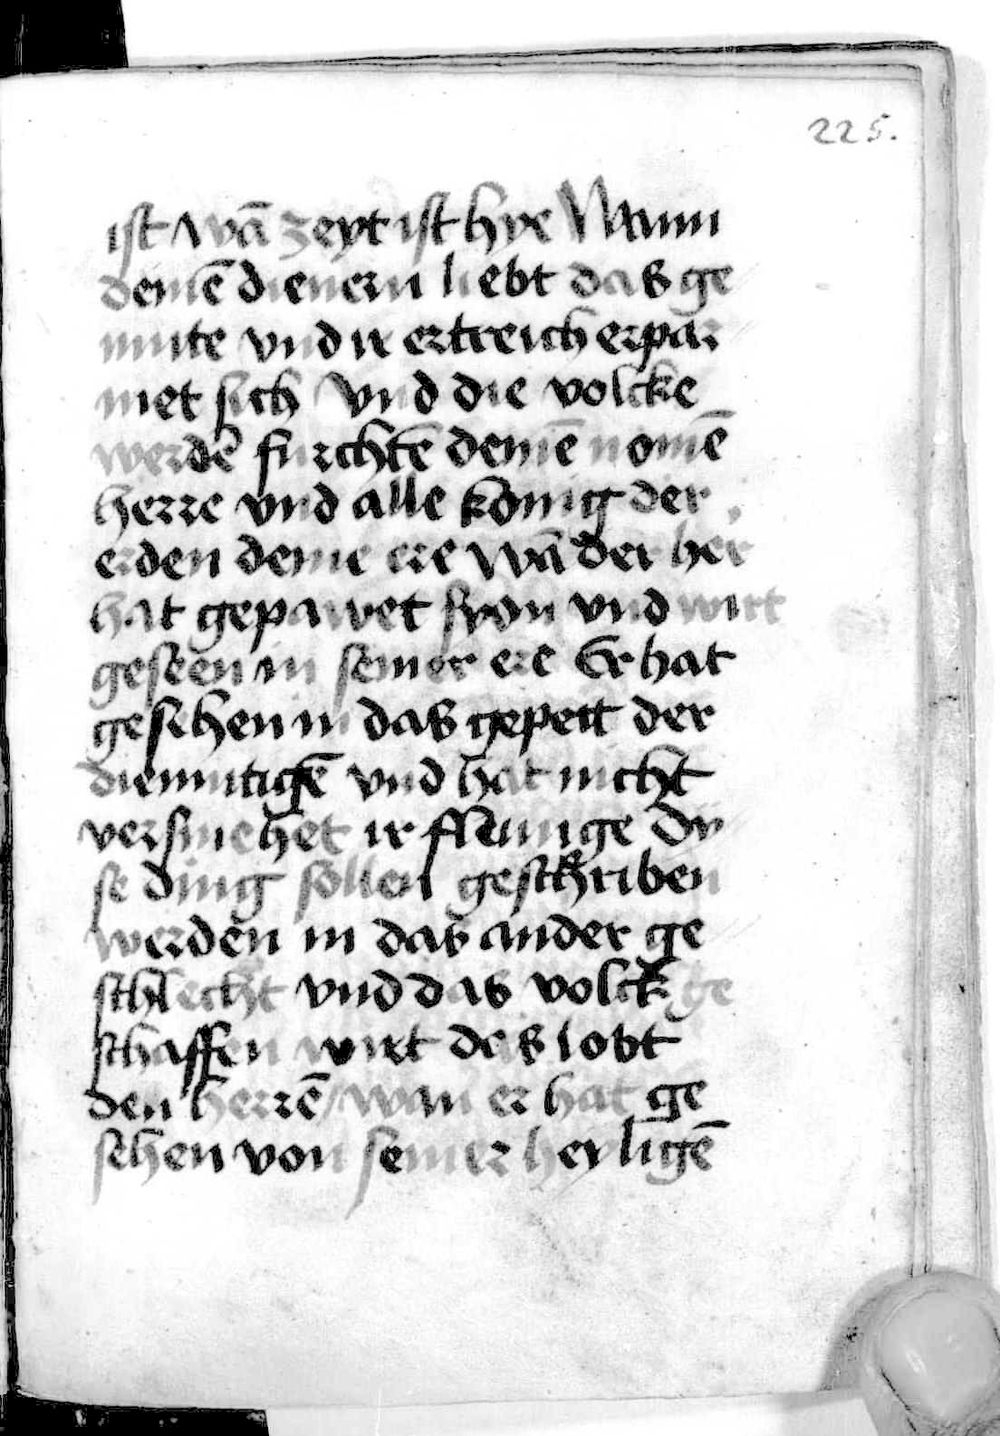 225.
ist wā zeyt ist hye Wann
deinē dienern liebt das ge
mute vnd ir ertreich erpar
met sich Vnd die volcke
werdē furchtē deinē nomē
herre vnd alle konig der
erden deine ere wā der her
hat gepawet syon vnd wirt
geseen in seiner ere Er hat
gesehen in das gepett der
diemutigē vnd hat nicht
versmehet ir flennige Dy
se ding sollen geschriben
werden in das ander ge
schlecht vnd das volck ge
schaffen wirt das lobt
den herrē / wan er hat ge
sehen von seiner heyligē